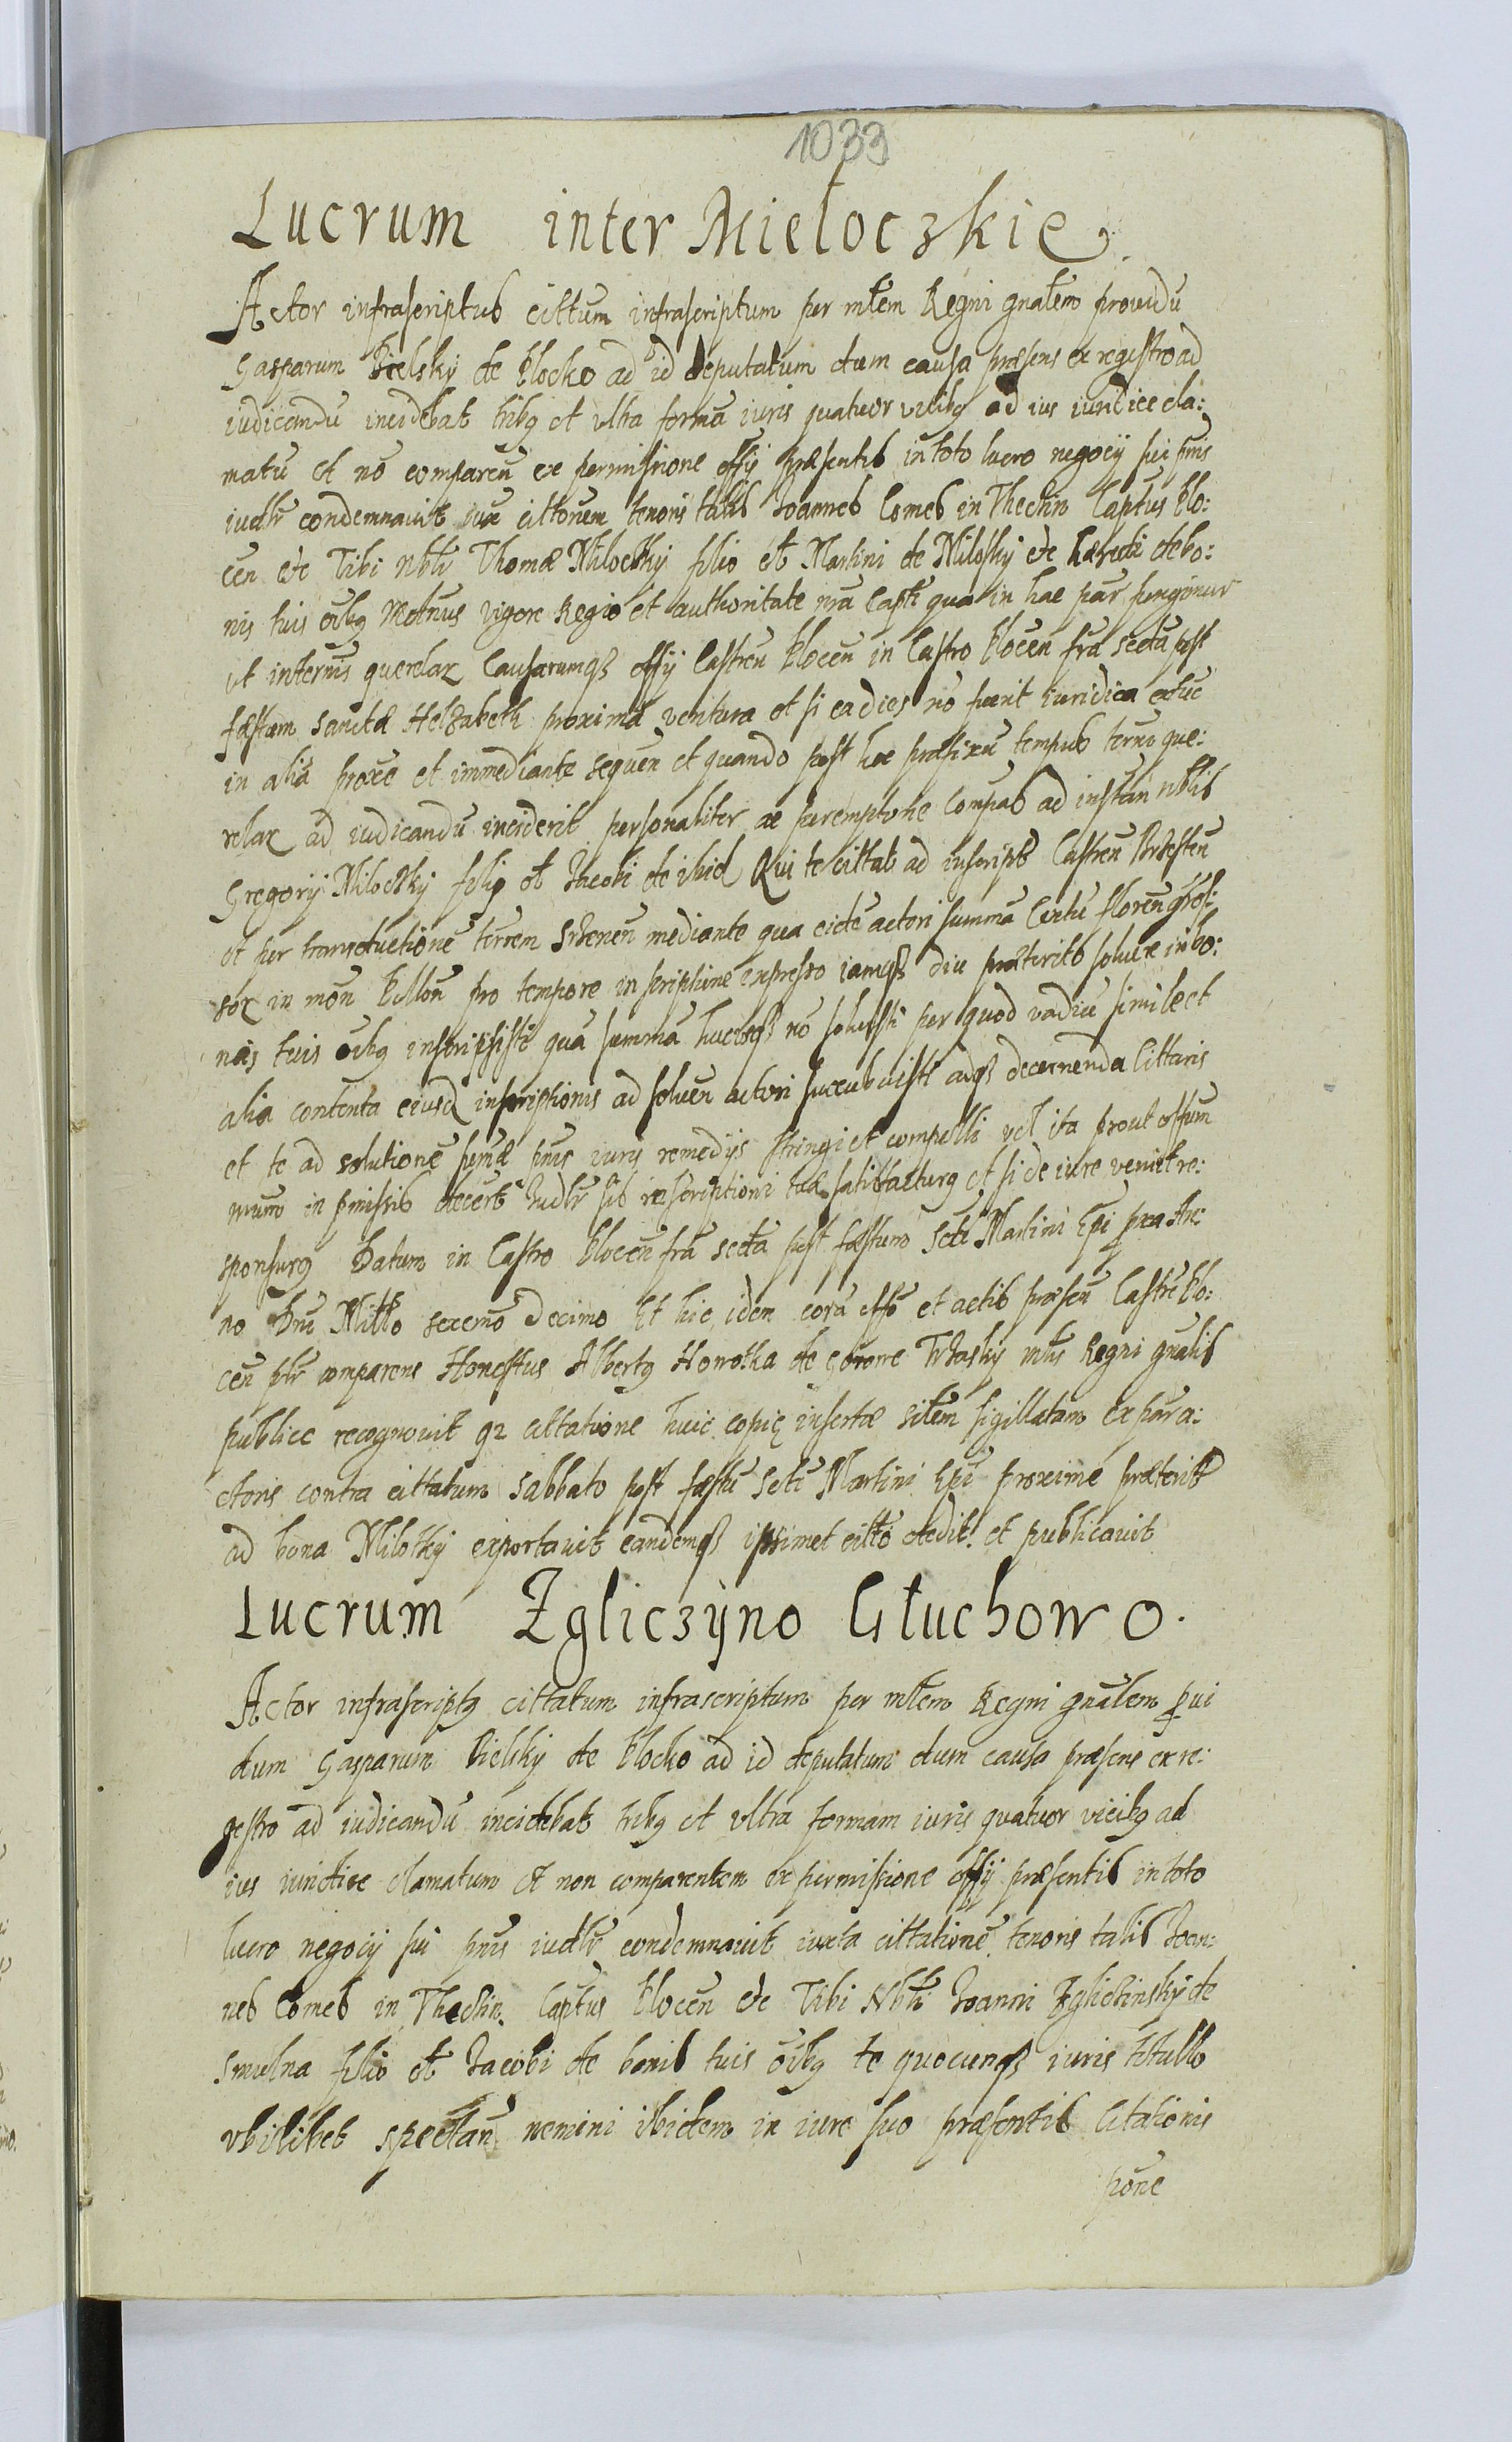 1033
Lucrum inter Miełoczkie
Actor infrascriptus cittum infrascriptum per mtem Regni gnalem prouidū
Gasparum Bielsky de Plocko ad id deputatum dum causa præsens ex regestro ad
iudicandū incidebat tribq et vltra formā iuris quatuor vicibq ad ius iuridice cla:
matū et nō comparēn ex permissione offy præsentis in toto lucro negocÿ sui pnis
iudlr condemnauit iux cittonem tenoris talis Joannes Comes in Thechin Captus Plo:
cēn etc Tibi Nbli Thomæ Miloczky filio ol Martini de Milosky etc hæredi de bo:
nis tuis oibq vigore Regio et authoritate nrā Captli qua in hac par fungimur
vt in termis querelar Causarumqʒ offÿ Castren Plocēn in Castro Plocēn frā sectā post
fæstum sanctæ Helzabeth proxima ventura et si ea dies nō fuerit iuridica extūc
in aliā proxe et immediante sequēn et quando post hoc præfixū tempus termi que:
relar ad iudicandū inciderit personaliter ac peremptorie compas ad instān nblis
Gregorÿ Miloczky filÿ ol Jacobi de ibid Qui te cittat ad inscript Castren Brzesten
et per transductionē terrem Srzenen mediante qua eidē actori summā Centū florēn gros:
sor in mon Pollōn pro tempore inscriptione expresso iamqʒ diu præterito soluere in bo:
nis tuis oibq inscripsisti quā summā hucusqʒ nō soluisti per quod vadiū simile et
alia contenta eiusd inscriptionis ad soluēn actori succubuisti adqʒ decernenda Cittaris
et te ad solutionē sumæ pnis iuris remedijs stringi et compelli vel ita prout offum
mum in pmissis decert Judlr sis inscriptioni tuæ satisfacturq et si de iure veniet re:
sponsurq Datum in Castro Plocēn frā sectā post fæstum Scti Martini Epi pxa An:
no Dni Millo sexcmo decimo Et hic idem corā offo et actis præsēn Castrē Plo:
cēn plr comparens Honestus Albertq Howotka de Gorarre Trzasky mtis Regni gnalis
publice recognouit qz cittatione huic copiȩ insertæ sitem sigillatam ex par a:
ctoris contra cittatum Sabbato post fæstū Scti Martini Epi proxime præterit
ad bona Milotky exportauit eandemqʒ ipsimet citto dedit et publicauit
Lucrum Zgliczÿno Głuchowo.
Actor infrascriptq cittatum infrascriptum per mtem Regni gnalem ꝓui
dum Gasparum Bielsky de Plocko ad id deputatum dum causa præsens ex re:
gestro ad iudicandū incidebat tribq et vltra formam iuris quatuor vicibq ad
ius iuridice clamatum et non comparentem ex permissione offÿ præsentis in toto
lucro negocÿ sui pnis iudlr condemnauit iuxta cittationē tenoris talis Joan:
nes Comes in Thechin Captus Plocēn etc Tibi Nbli Joanni Zgliczinskÿ de
Smulna filio ol Jacobi de bonis tuis oibq te quocunqʒ iuris titullo
vbilibet spectān nemini ibidem in iure suo præsentis Citationis
pōne